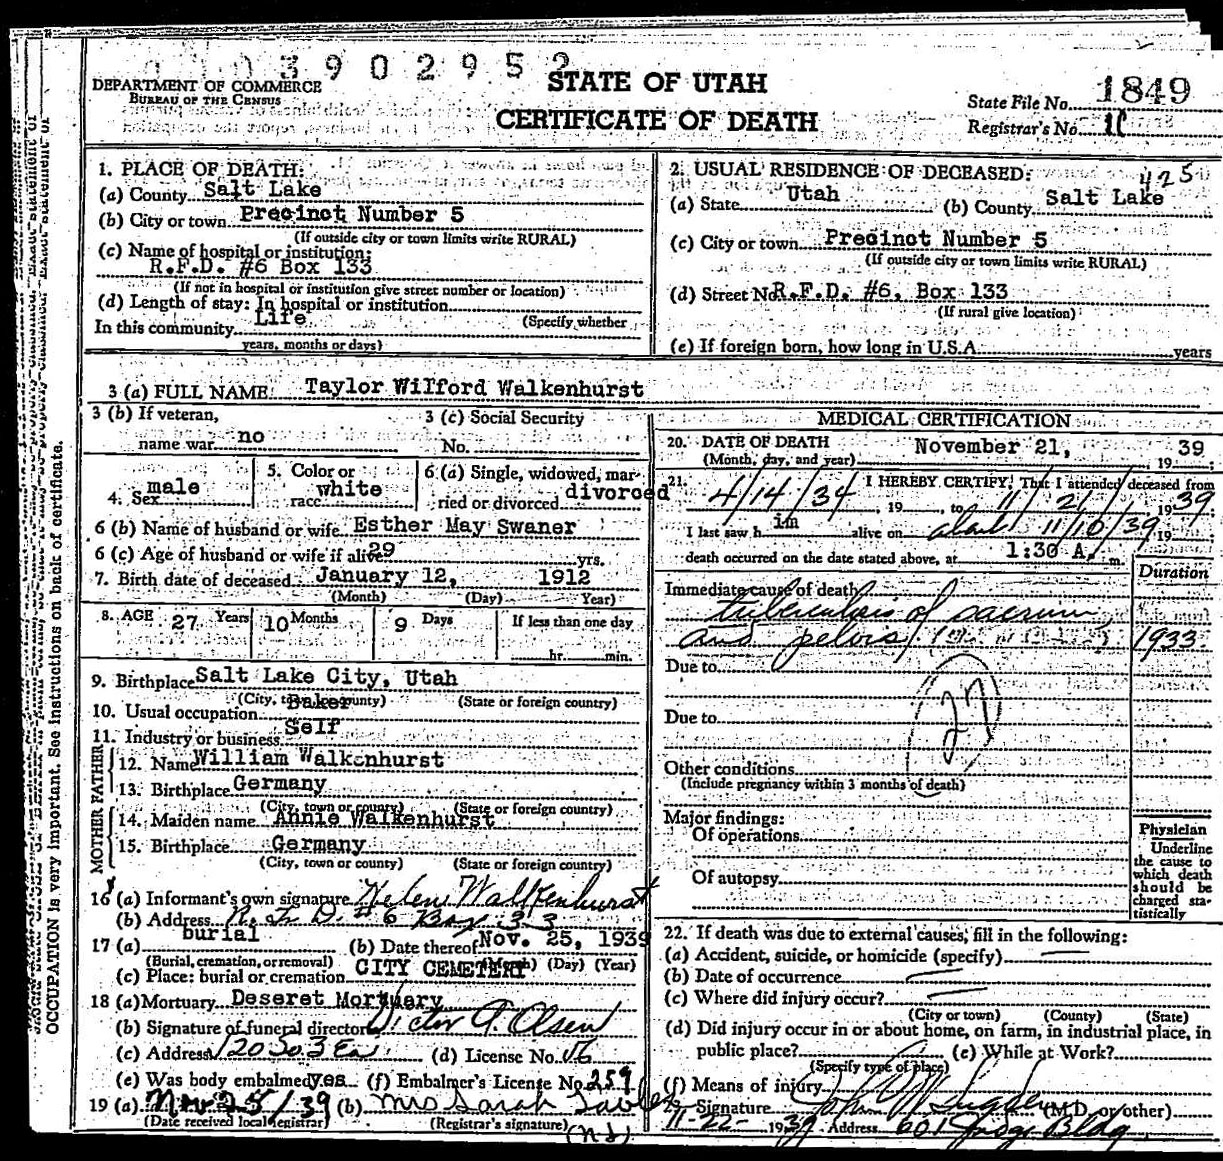 3902952
DEPARTMENT OF COMMERCE
BUREAU OF THE CENSUS
STATE OF UTAH
CERTIFICATE OF DEATH
State File No. 1849
Registrar's No.
1. PLACE OF DEATH:
(a) County Salt Lake
(b) City or town Precinct Number 5
(If outside city or town limits write RURAL)
(c) Name of hospital or institution:
R.F.D. #6 Box 133
(If not in hospital or institution give street number or location)
(d) Length of stay: In hospital or institution
(Specify whether
In this community Life
years, months or days)
2. USUAL RESIDENCE OF DECEASED: 425
(a) State Utah (b) County Salt Lake
(c) City or town Precinct Number 5
(If outside city or town limits write RURAL)
(d) Street No. R.F.D. #6, Box 133
(If rural give location)
(e) If foreign born, how long in U.S.A. years
3 (a) FULL NAME Taylor Wilford Walkenhurst
3 (b) If veteran,
name war no
3 (c) Social Security
No.
4. Sex male
5. Color or
race white
6 (a) Single, widowed, mar-
ried or divorced divorced
6 (b) Name of husband or wife Esther May Swaner
6 (c) Age of husband or wife if alive 29 yrs.
7. Birth date of deceased January 12, 1912
(Month) (Day) Year)
8. AGE 27 Years 10 Months 9 Days If less than one day
hr. min.
9. Birthplace Salt Lake City, Utah
(City, town or county) (State or foreign country)
10. Usual occupation Baker
11. Industry or business Self
FATHER
12. Name William Walkenhurst
13. Birthplace Germany
(City, town or county) (State or foreign country)
MOTHER
14. Maiden name Annie Walkenhurst
15. Birthplace Germany
(City, town or county) (State or foreign country)
16 (a) Informant's own signature Helen Walkenhurst
(b) Address R. F. D. #6 Box 33
17 (a) burial (b) Date thereof Nov. 25, 1939
(Burial, cremation, or removal) (Month) (Day) (Year)
(c) Place: burial or cremation CITY CEMETERY
18 (a) Mortuary Deseret Mortuary
(b) Signature of funeral director Victor A. Olsen
(c) Address 120 So 3 Ea (d) License No. 76
(e) Was body embalmed yes (f) Embalmer's License No. 259
19 (a) Nov 25/39 (b) Mrs Sarah
(Date received local registrar) (Registrar's signature)
MEDICAL CERTIFICATION
20. DATE OF DEATH November 21, 1939
(Month, day, and year)
21. I HEREBY CERTIFY, That I attended deceased from
4/14/34, 19 to 11/21 1939
I last saw him alive on 11/10/39 19
death occurred on the date stated above, at 1:30 A. m.
Duration
Immediate cause of death
tuberculosis of sacrum
and pelvis 1933
Due to
Due to
27
Other conditions
(Include pregnancy within 3 months of death)
Major findings:
Of operations
Of autopsy
Physician
Underline
the cause to
which death
should be
charged sta-
tistically
22. If death was due to external causes, fill in the following:
(a) Accident, suicide, or homicide (specify)
(b) Date of occurrence
(c) Where did injury occur?
(City or town) (County) (State)
(d) Did injury occur in or about home, on farm, in industrial place, in
public place? (e) While at Work?
(Specify type of place)
(f) Means of injury
Signature John (M.D. or other)
11-22- 1939 Address 601 Judge Bldg
OCCUPATION is very important. See instructions on back of certificate.